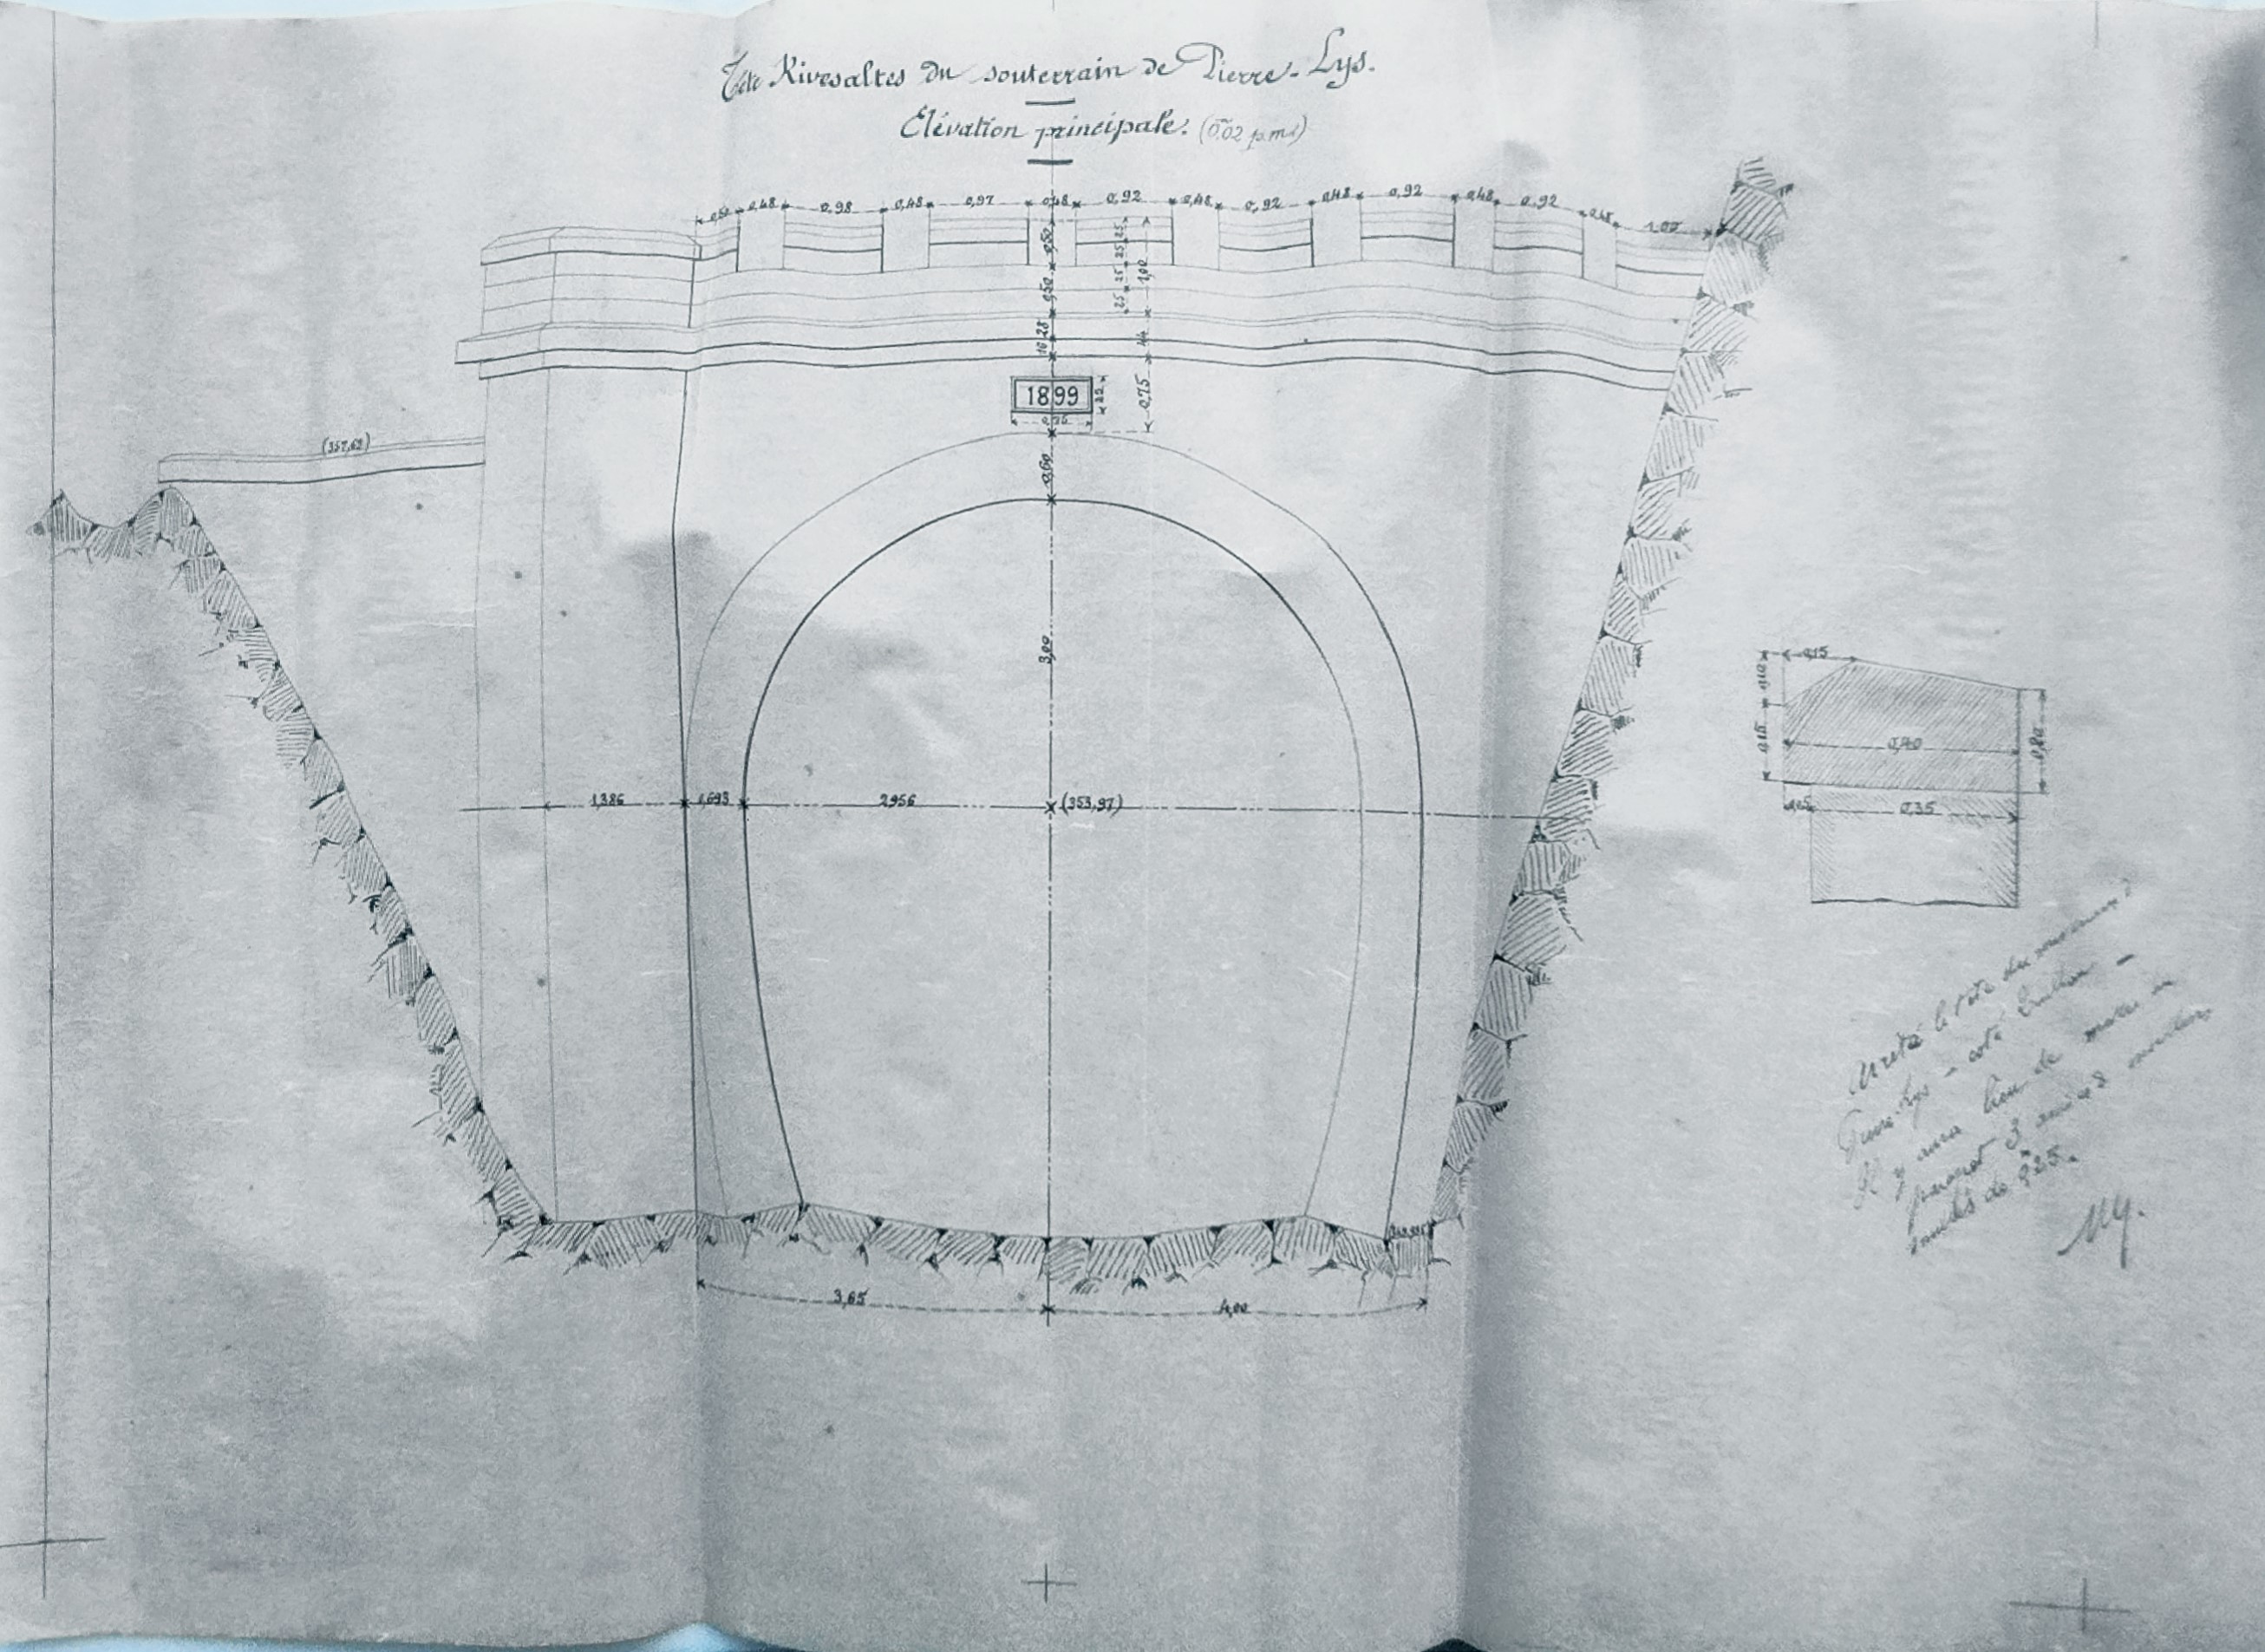 Tête Rivesaltes du souterrain de Pierre-Lys.
Elévation principale. (0,02 p.m.)
0,50 0,48 0,98 0,48 0,97 0,48 0,92 0,48 0,92 0,48 0,92 0,48 0,92 0,48 1,00
0,50 25 25
0,50 25 25 1,00
28 44
16
1899 22 0,75
0,75
(357,62)
0,60
3,00
1,386 0,693 2956 (353,97)
3,65 4,00
0,15
0,10
0,15 0,40 0,20
0,05 0,35
Arrêté la tête du souterrain de
Pierre Lys - coté Quillan -
Il y aura lieu de
3
de 0,25.